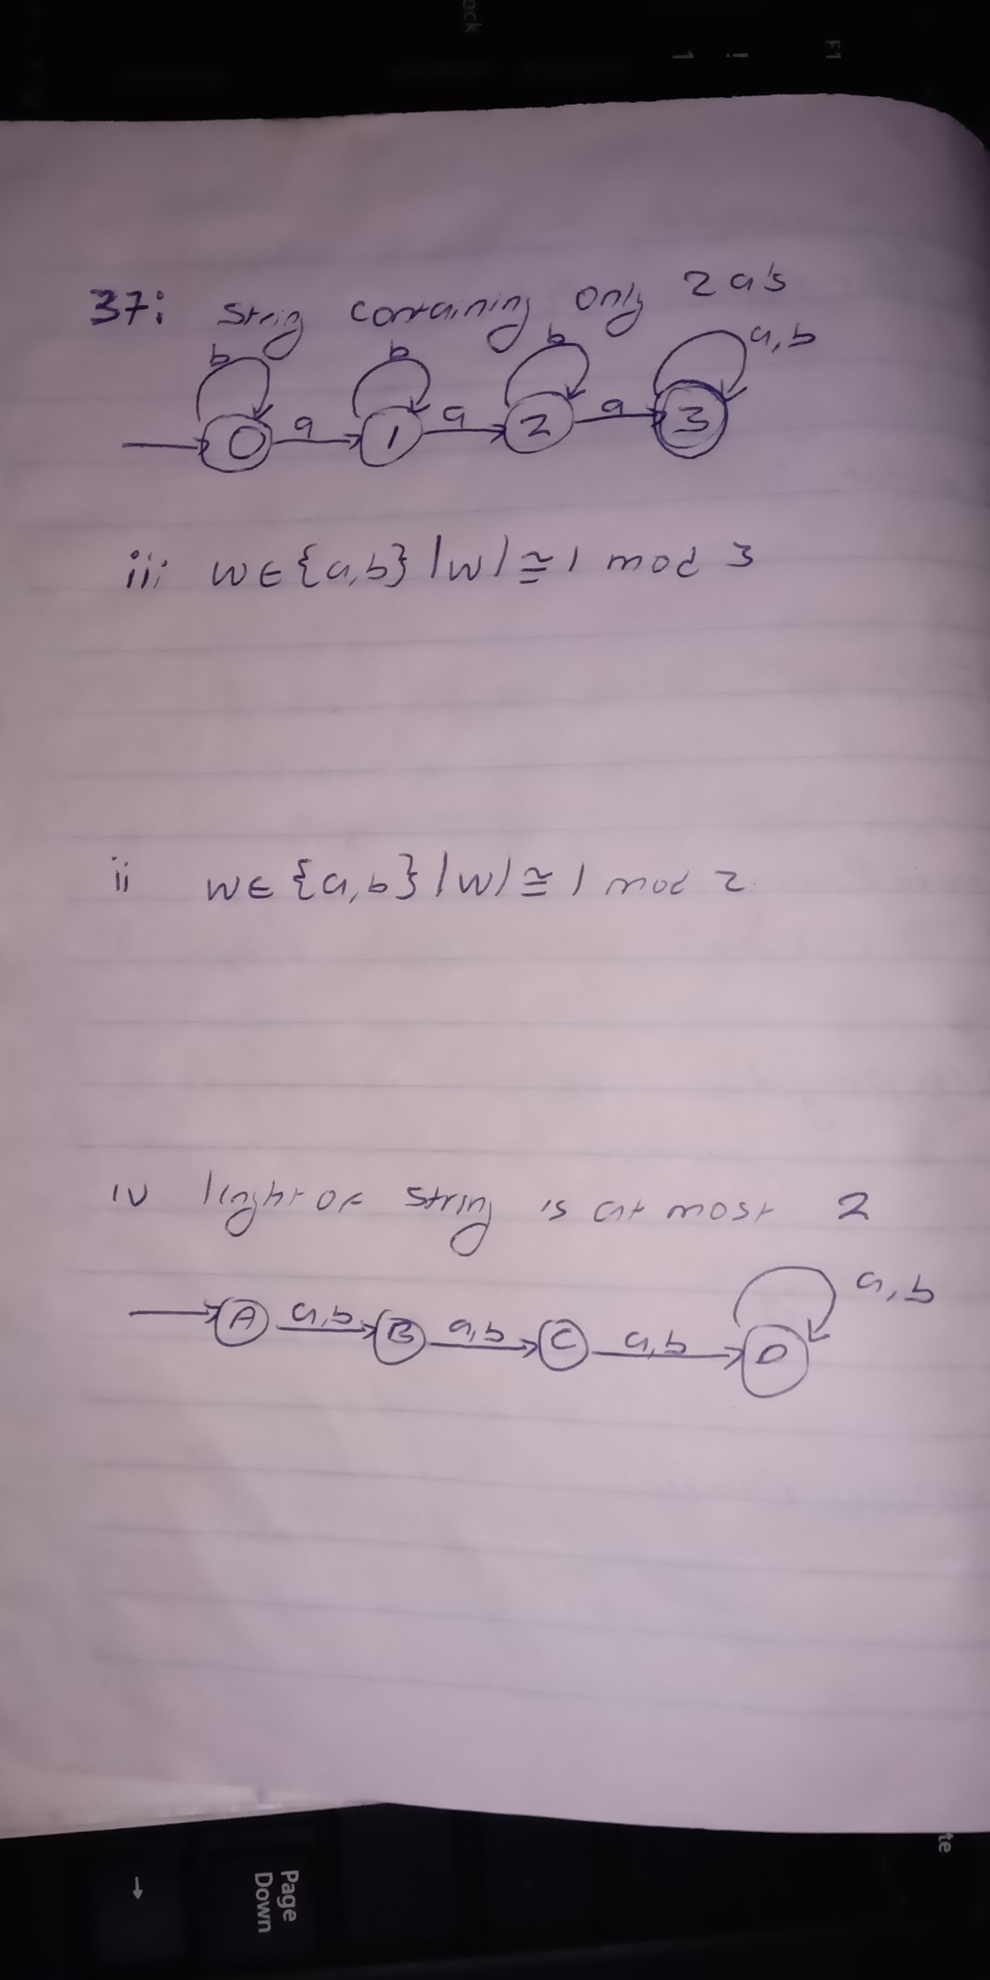 37: String containing only 2 a's
b b b a,b
0 a 1 a 2 a 3
iii w∈{a,b} |w| ≅ 1 mod 3
ii w∈{a,b} |w| ≅ 1 mod 2
iv lenght of string is at most 2
a,b
A a,b B a,b C a,b D
Page
Down
te
F1
!
1
ock
→